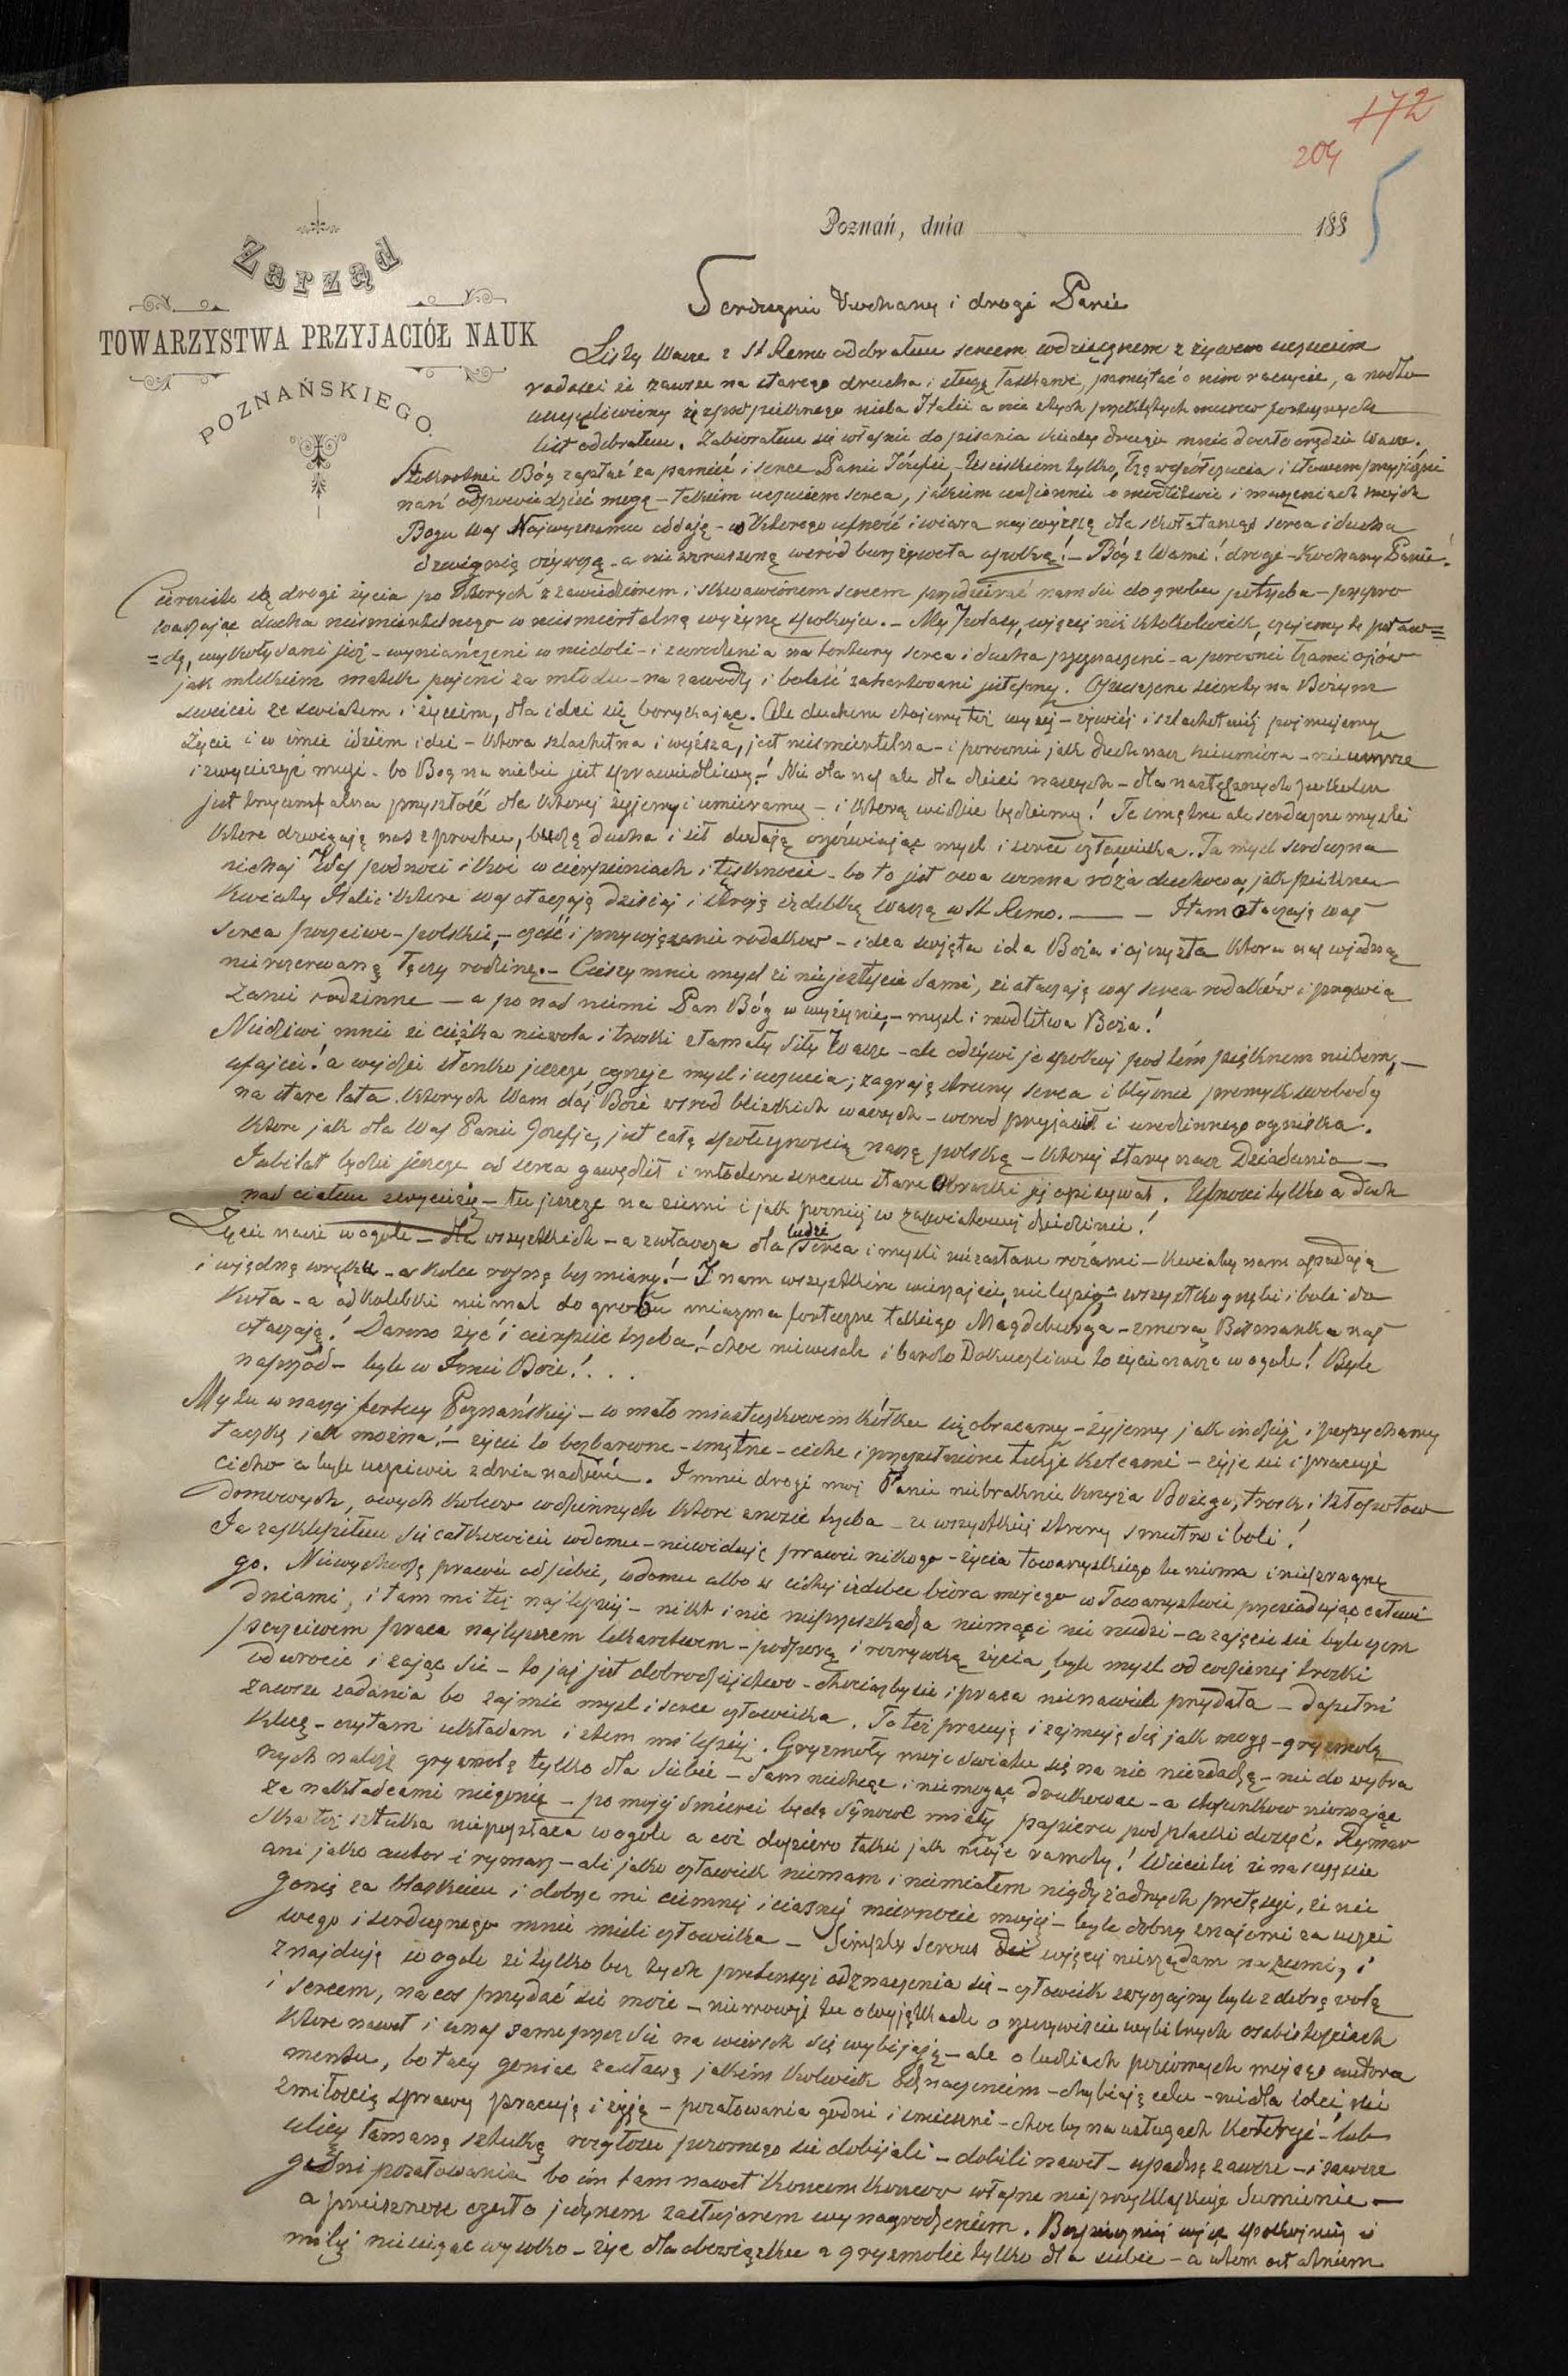 172
204
5
Poznań, dnia 188
Zarząd
TOWARZYSTWA PRZYJACIÓŁ NAUK
POZNAŃSKIEGO.
Serdecznie Kochany i drogi Panie
Listy Wasze z St Remo odebrałem sercem wdzięcznem z żywem uczuciem
radości że zawsze na starego druha i sługę łaskawi, pamiętać o nim raczycie, a nadto
uszczęśliwiony że z pod pięknego nieba Italii a nie z tych przeklętych murów fortecznych
list odebrałem. Zabierałem się właśnie do pisania kiedy drugie mnie doszło orędzie Wasze.
Stokrotnie Bóg zapłać za pamięć i serce Panie Józefie, uściskiem tylko, łzą współczucia i słowem przyjaźni
nań odpowiedzieć mogę – takiem uczuciem serca, jakiem codziennie w modlitwie i marzeniach moich
Bogu Was Najwyższemu oddaję – w Którego ufność i wiara najwyższą dla skołatanego serca i ducha
dzwignią ożywczą – a nie wzruszoną wśród burz żywota opoką! – Bóg z Wami! drogi – Kochany Panie!
Cierniste są drogi życia po których z zawiedzionem i skrwawionem sercem przedzierać nam się do grobu potrzeba – przypro
wadzając ducha nieśmiertelnego w nieśmiertelną wyżynę spokoju. – My Polacy, więcej niż ktokolwiek, czujemy tę praw=
=dę, wykołysani jej – wyniańczeni w niedoli – i z urodzenia na tortury serca i ducha przeznaczeni – a porówni łzami ojców
jak mlekiem matek pojeni za młodu – na zawody i boleść zahartowani jesteśmy. Opuszczone sieroty na Bożym
świecie ze światem i życiem, dla idei się borykając. Ale duchem stojemy też wyżej – żywiéj i szlachetniéj pojmujemy
życie i w imie idziem idei – która szlachetna i wyższa, jest nieśmiertelna – i porównie jak duch nasz nieumiera – nieumrze
i zwyciężyć musi – bo Bóg na niebie jest sprawiedliwy! – Nie dla nas ale dla dzieci naszych – dla następnych pokoleń
jest tryumfalna przyszłość dla której żyjemy i umieramy – i którą widzieć będziemy! Te smętne ale serdeczne myśli
które dzwigają nas z prochu, budzą ducha i sił dodają ożywiając myśl i serce człowieka. Ta myśl serdeczna
niechaj Was podnosi i koi w cierpieniach i tęsknocie – bo to jest owa wonna róża duchowa, jak piękne
kwiaty Italii które Was otaczają dzisiaj i stroją izdebkę waszą w St Remo. — – I tam otaczają was
serca poczciwe – polskie, – cześć i przywiązanie rodaków – idea święta idea Boża i ojczysta która nas w jedną
nierozerwaną łączy rodzinę. – Cieszy mnie myśl że niejesteście sami, że otaczają was serca rodaków i przywią
zanie rodzinne — a po nad niemi Pan Bóg w wyżynie, – myśl i modlitwa Boża!
Niedziwi mnie że ciężka niewola i troski złamały siły Wasze – ale odżywi je spokój pod tém pięknem niebem, –
ufajcie! a wyjdzie słonko jeszcze ogrzeje myśl i uczucia; zagrają struny serca i błyśnie promyk swobody
na stare lata których Wam daj Boże wśród bliskich waszych – wśród przyjaciół i urodzinnego ogniska.
które jak dla Was Panie Józefie, jest całą społecznością naszą polską – której stary nasz Dziadunio —
Jubilat będzie jeszcze od serca gawędził i młodem sercem stare obrazki jej opisywał. Ufności tylko a duch
nad ciałem zwycięży – tu jeszcze na ziemi i jak poźniéj w zaświatowéj dziedzinie!
Życie nasze wogóle – dla wszystkich – a zwłaszcza dla ludzi serca i myśli niezasłane różami – kwiaty nam opadają
i więdną wręku – a kolce rosną bez miary! – I nam wszystkim wierzajcie, nielepiéj – wszystko gnębi i bole do
koła – a od kolebki niemal do grobu miazma forteczne takiego Magdeburga – zmora Bismarka nas
otaczają! Darmo żyć i cierpieć trzeba! – choć niewesołe i bardzo Dokuczliwe to życie nasze wogóle! Byle
naprzód – byle w Imię Boże! . . .
My tu w naszéj fortecy Poznańskiéj – w mało miasteczkowem kółku się obracamy – żyjemy jak indziéj i pczychamy
taczkę jak można! – życie to bezbarwne – smętne – ciche i przepełnione tutże kolcami – żyje się i pracuje
cicho a byle uczciwie z dnia nadzień. I mnie drogi moj Panie niebraknie krzyża Bożego, trosk i kłopotów
domowych, owych kolców codziennych które znosić trzeba – ze wszystkiéj strony smutno i boli!
Ja zasklepiłem się całkowicie wdomu – niewiduję prawie nikogo – życia towarzyskiego tu niema i niepragnę
go. Niewychodzę prawie od siebie, wdomu albo w cichéj izdebce biora mojego w Towarzystwie przesiadując całemi
dniami, i tam mi też najlepiéj – nikt i nic nieprzeszkadza niemąci nie nudzi – a zajęcie się byle czem
poczciwem praca najlepszem lekarstwem – podporą i rozrywką życia, byle myśl od codziennéj troski
odwrocić i zająć się – to jej jest dobrodziejstwo – chociażby się i praca nienawiele przydała – dopełni
zawsze zadania bo zajmie myśl i serce człowieka. To też pracuję i zajmuję się jak mogę – gryzmolę
klecę – czytam układam i ztem mi lepiéj. Gryzmoły moje światu się na nic niezdadzą – nie do wybra
nych należę gryzmolę tylko dla siebie – sam niechcąc i niemogąc drukować – a stosunków niemając
za nakładcami niegonię – po mojéj śmierci będą synowie mieli papieru pod placki dosyć. Rymar
ska też sztuka niepopłaca wogóle a coż dopiero takie jak moje ramoty! Wiecie też że naszczęście
ani jako autor i rymarz – ale jako człowiek niemam i niemiałem nigdy żadnych pretęsyi, że nie
gonię za blaskiem i dobrze mi w ciemnéj i ciasnéj mierności mojéj – byle dobrzy znajomi za uczci
wego i serdecznego mnie mieli człowieka – Simplex Servus Dei więcéj nieżądam na ziemi, i
znajduję wogóle że tylko bez tych pretensyi odznaczenia się – człowiek zwyczajny byle z dobrą wolą
i sercem, na coś przydać się może – niemowię tu o wyjątkach o rzeczywiście wybitnych osobistościach
które nawet i u nas same przez się na wierzch się wybijają – ale o ludziach poziomych mojego autora
mentu, bo tacy goniąc za sławą jakiém kolwiek odznaczeniem – chybiają celu – nie dla idei, nie
zmiłością sprawy pracują i żyją – pożałowania godni i śmieszni – choćby na usługach koteryi – lub
ulicy łamaną sztuką rozgłosu pozornego się dobijali – dobili nawet – upadną zawsze – i zawsze
godni pożałowania bo im tam nawet koncem konców własne nieprzyklaskuje Sumienie —
a śmieszność często jedynem zasłużonem wynagrodzeniem. Bezpieczniéj więc spokojniéj i
miléj niesięgać wysoko – żyć dla obowiązku a gryzmolić tylko dla siebie – a wtem ostatniem